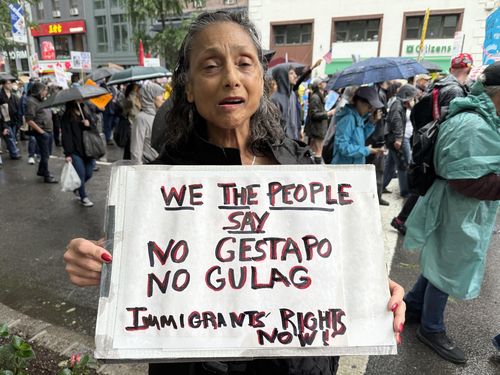 WE THE PEOPLE
SAY
NO GESTAPO
NO GULAG
IMMIGRANTS' RIGHTS
NOW!
citizens